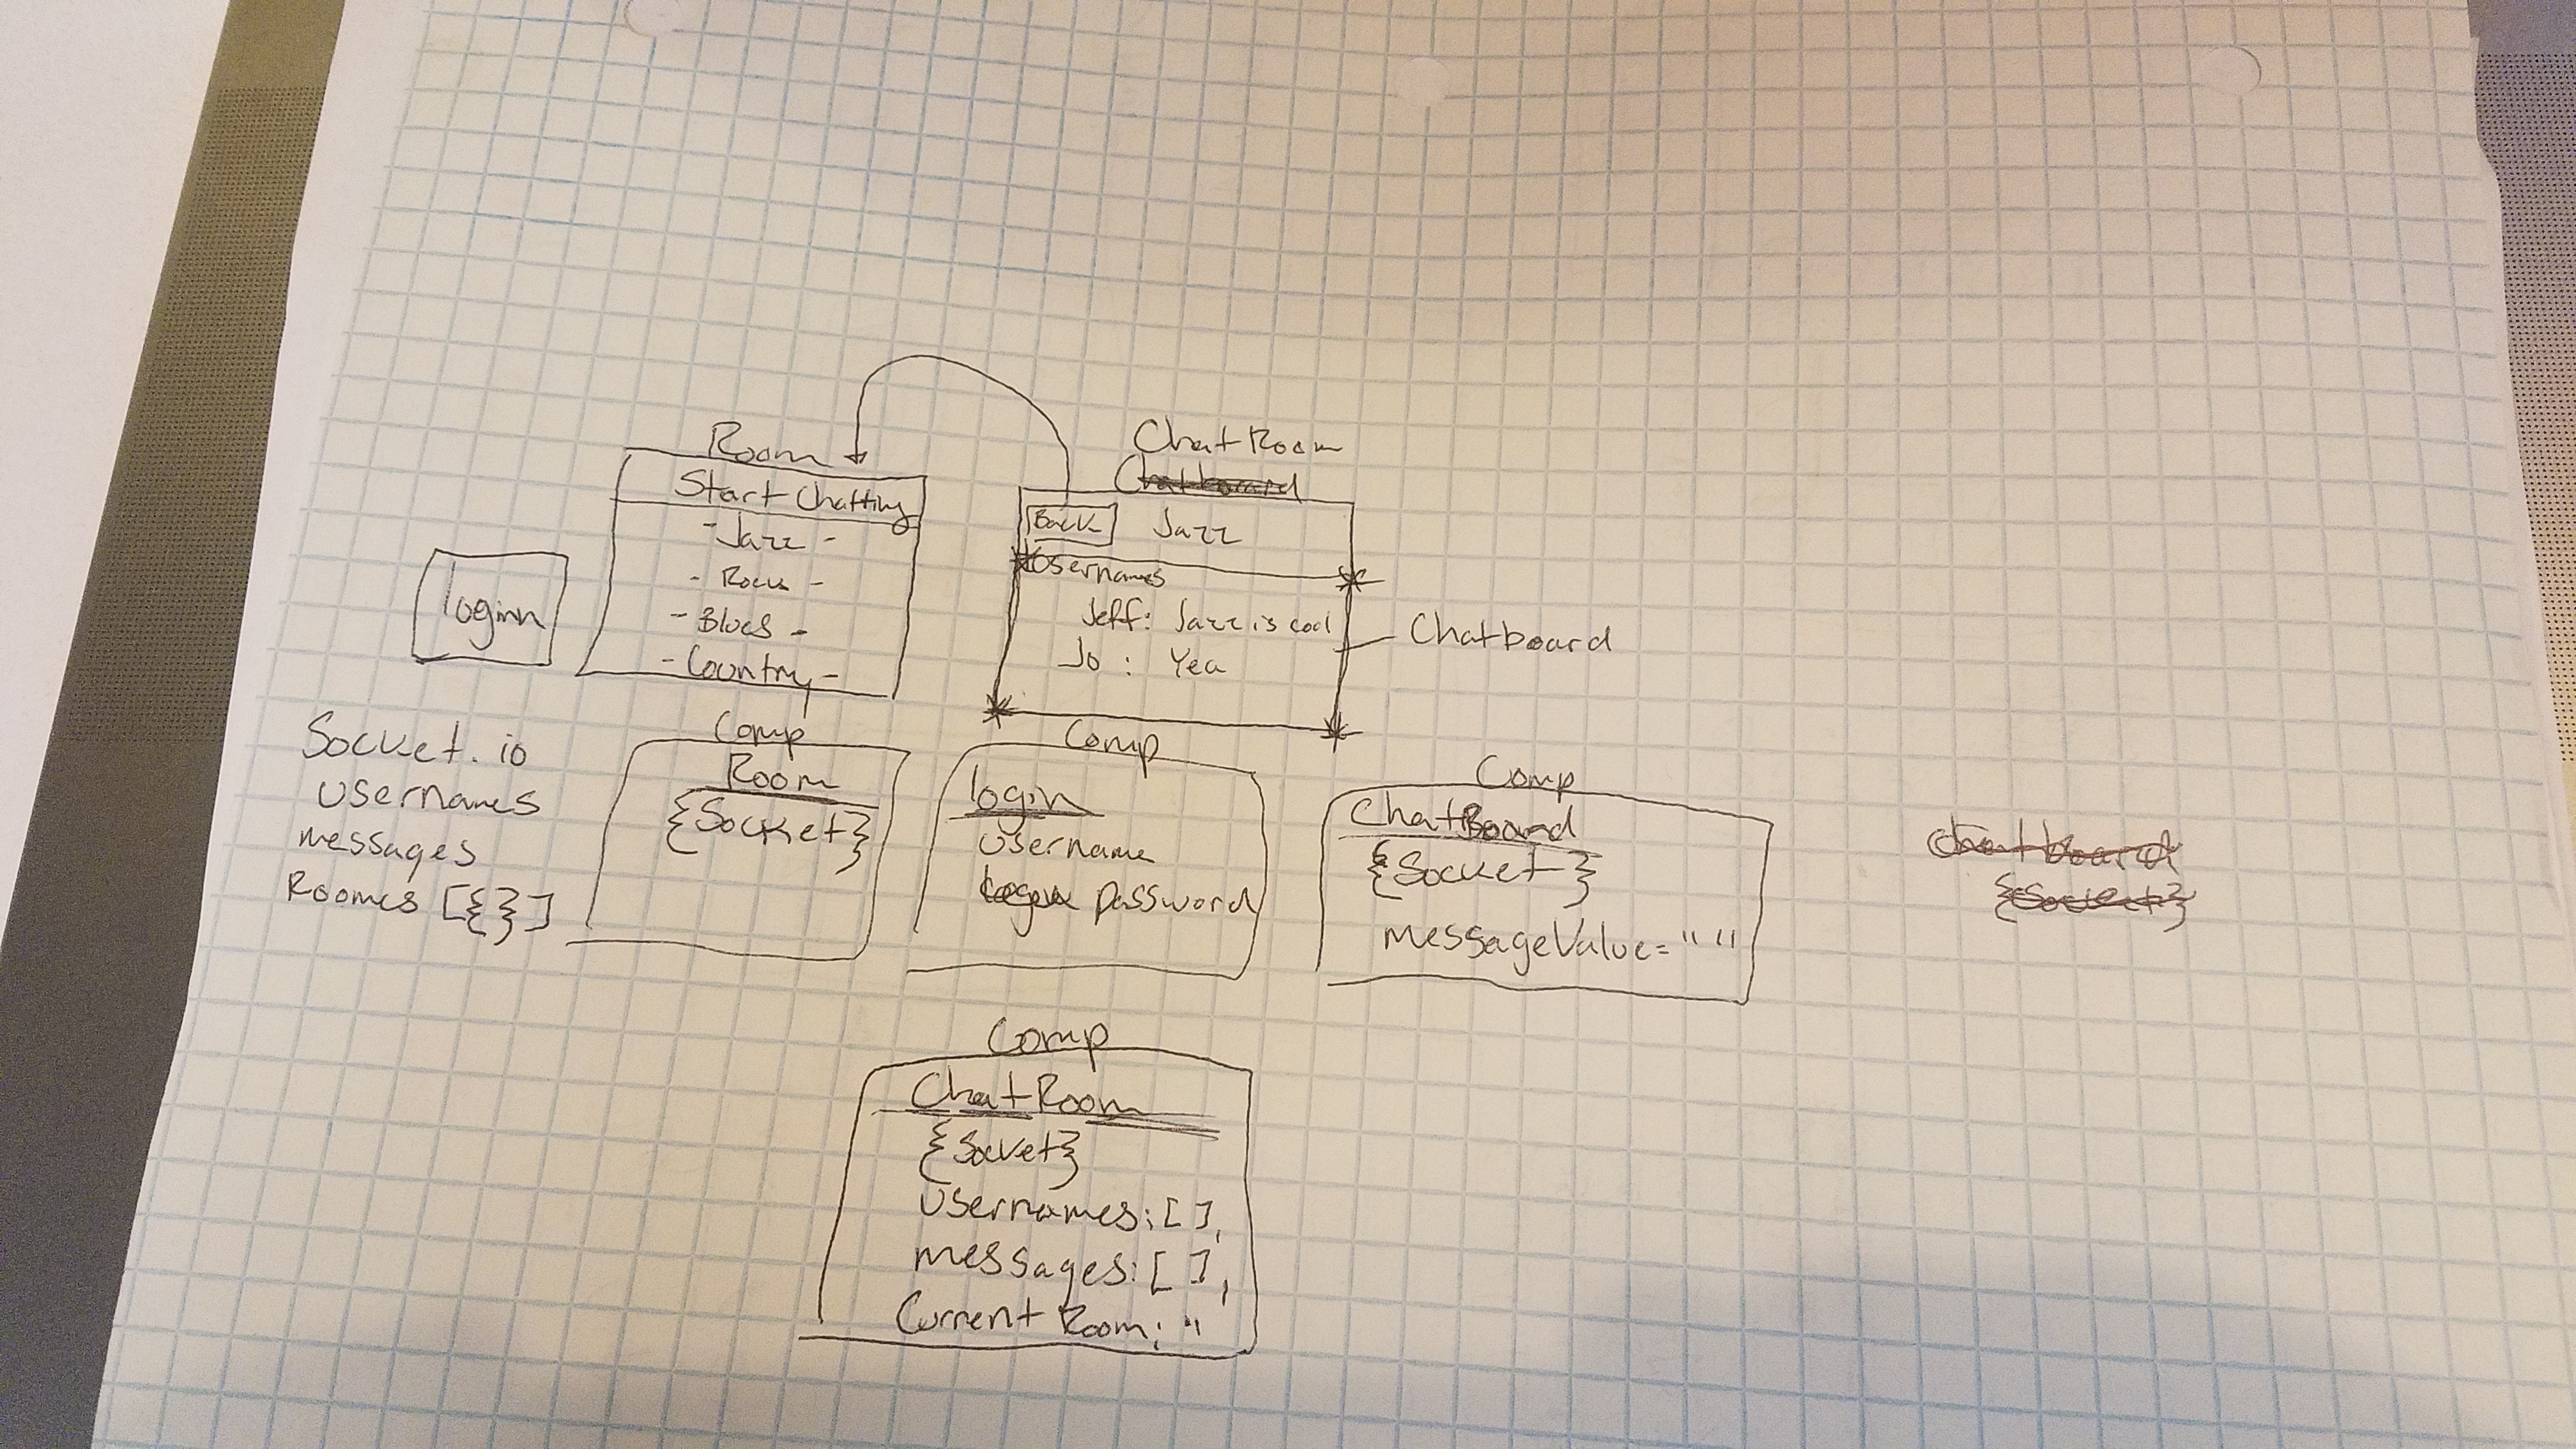 Room
Start Chatting
- Jazz -
- Rock -
- Blues -
- Country -
login
ChatRoom
Chatboard
Back Jazz
Usernames
Jeff: Jazz is cool
Jo : Yea
Chatboard
Socket.io
Usernames
messages
Roomes [{}]
Comp
Room
{Socket}
Comp
login
Username
login password
Comp
ChatBoard
{Socket}
messageValue=" "
chatboard
{Socket}
Comp
ChatRoom
{Socket}
Usernames: [ ],
messages: [ ],
Current Room: "